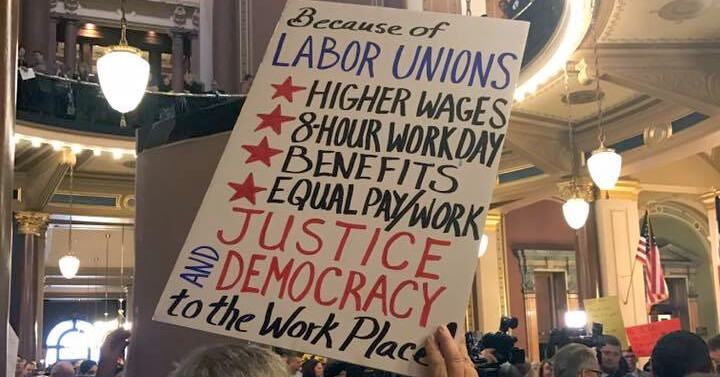 Because of
LABOR UNIONS
★ HIGHER WAGES
★ 8-HOUR WORK DAY
★ BENEFITS
★ EQUAL PAY/WORK
JUSTICE
AND DEMOCRACY
to the Work Place